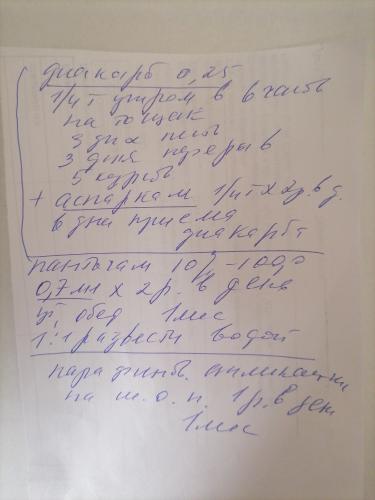 диакарб 0,25
1/4 т утром в
на тощак
3 дня пить
3 дня перерыв
5 
+ аспаркам 1/4 т х 2 р. в д.
в дни приема
диакарба
пантогам 10% - 100,0
0,7 мл х 2 р. в день
обед 1 мес
1:1 развести водой
парафинов. аппликации
на ш.о.п. 1 р. в день
1 мес